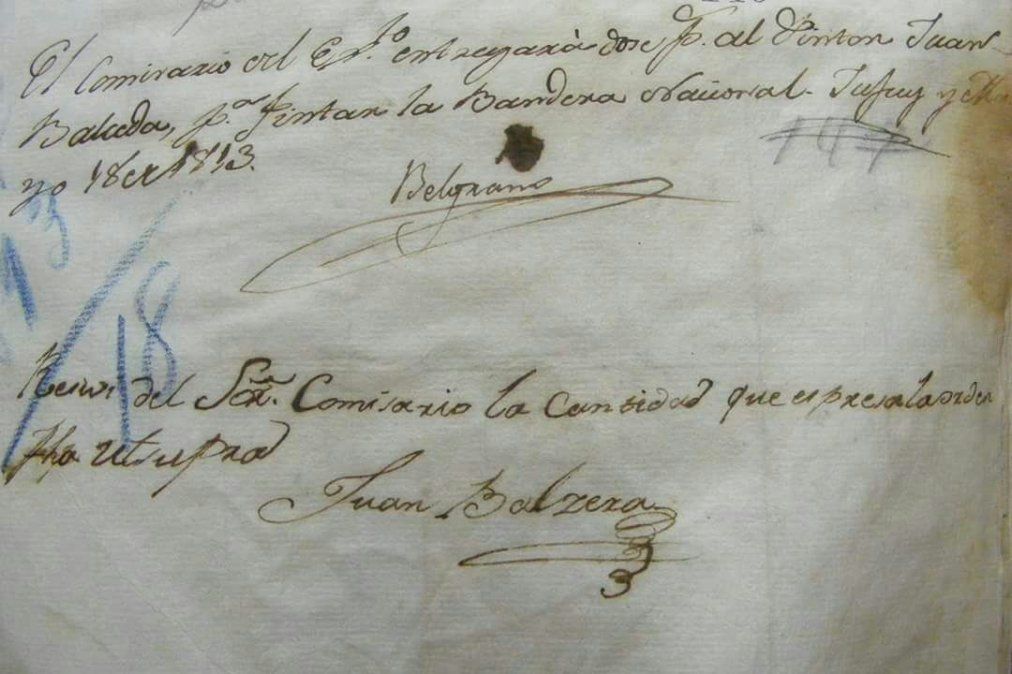 El Comisario del Ex.to entregará dose p.s al Pintor Juan
Balceda, p.a Pintar la Bandera Nacional. Jujuy y Ma
yo 18 de 1813.
Belgrano
Recivi del Sor. Comisario la Cantidad que espresa la orden
fha ut supra
Juan Balzera
13
/
18